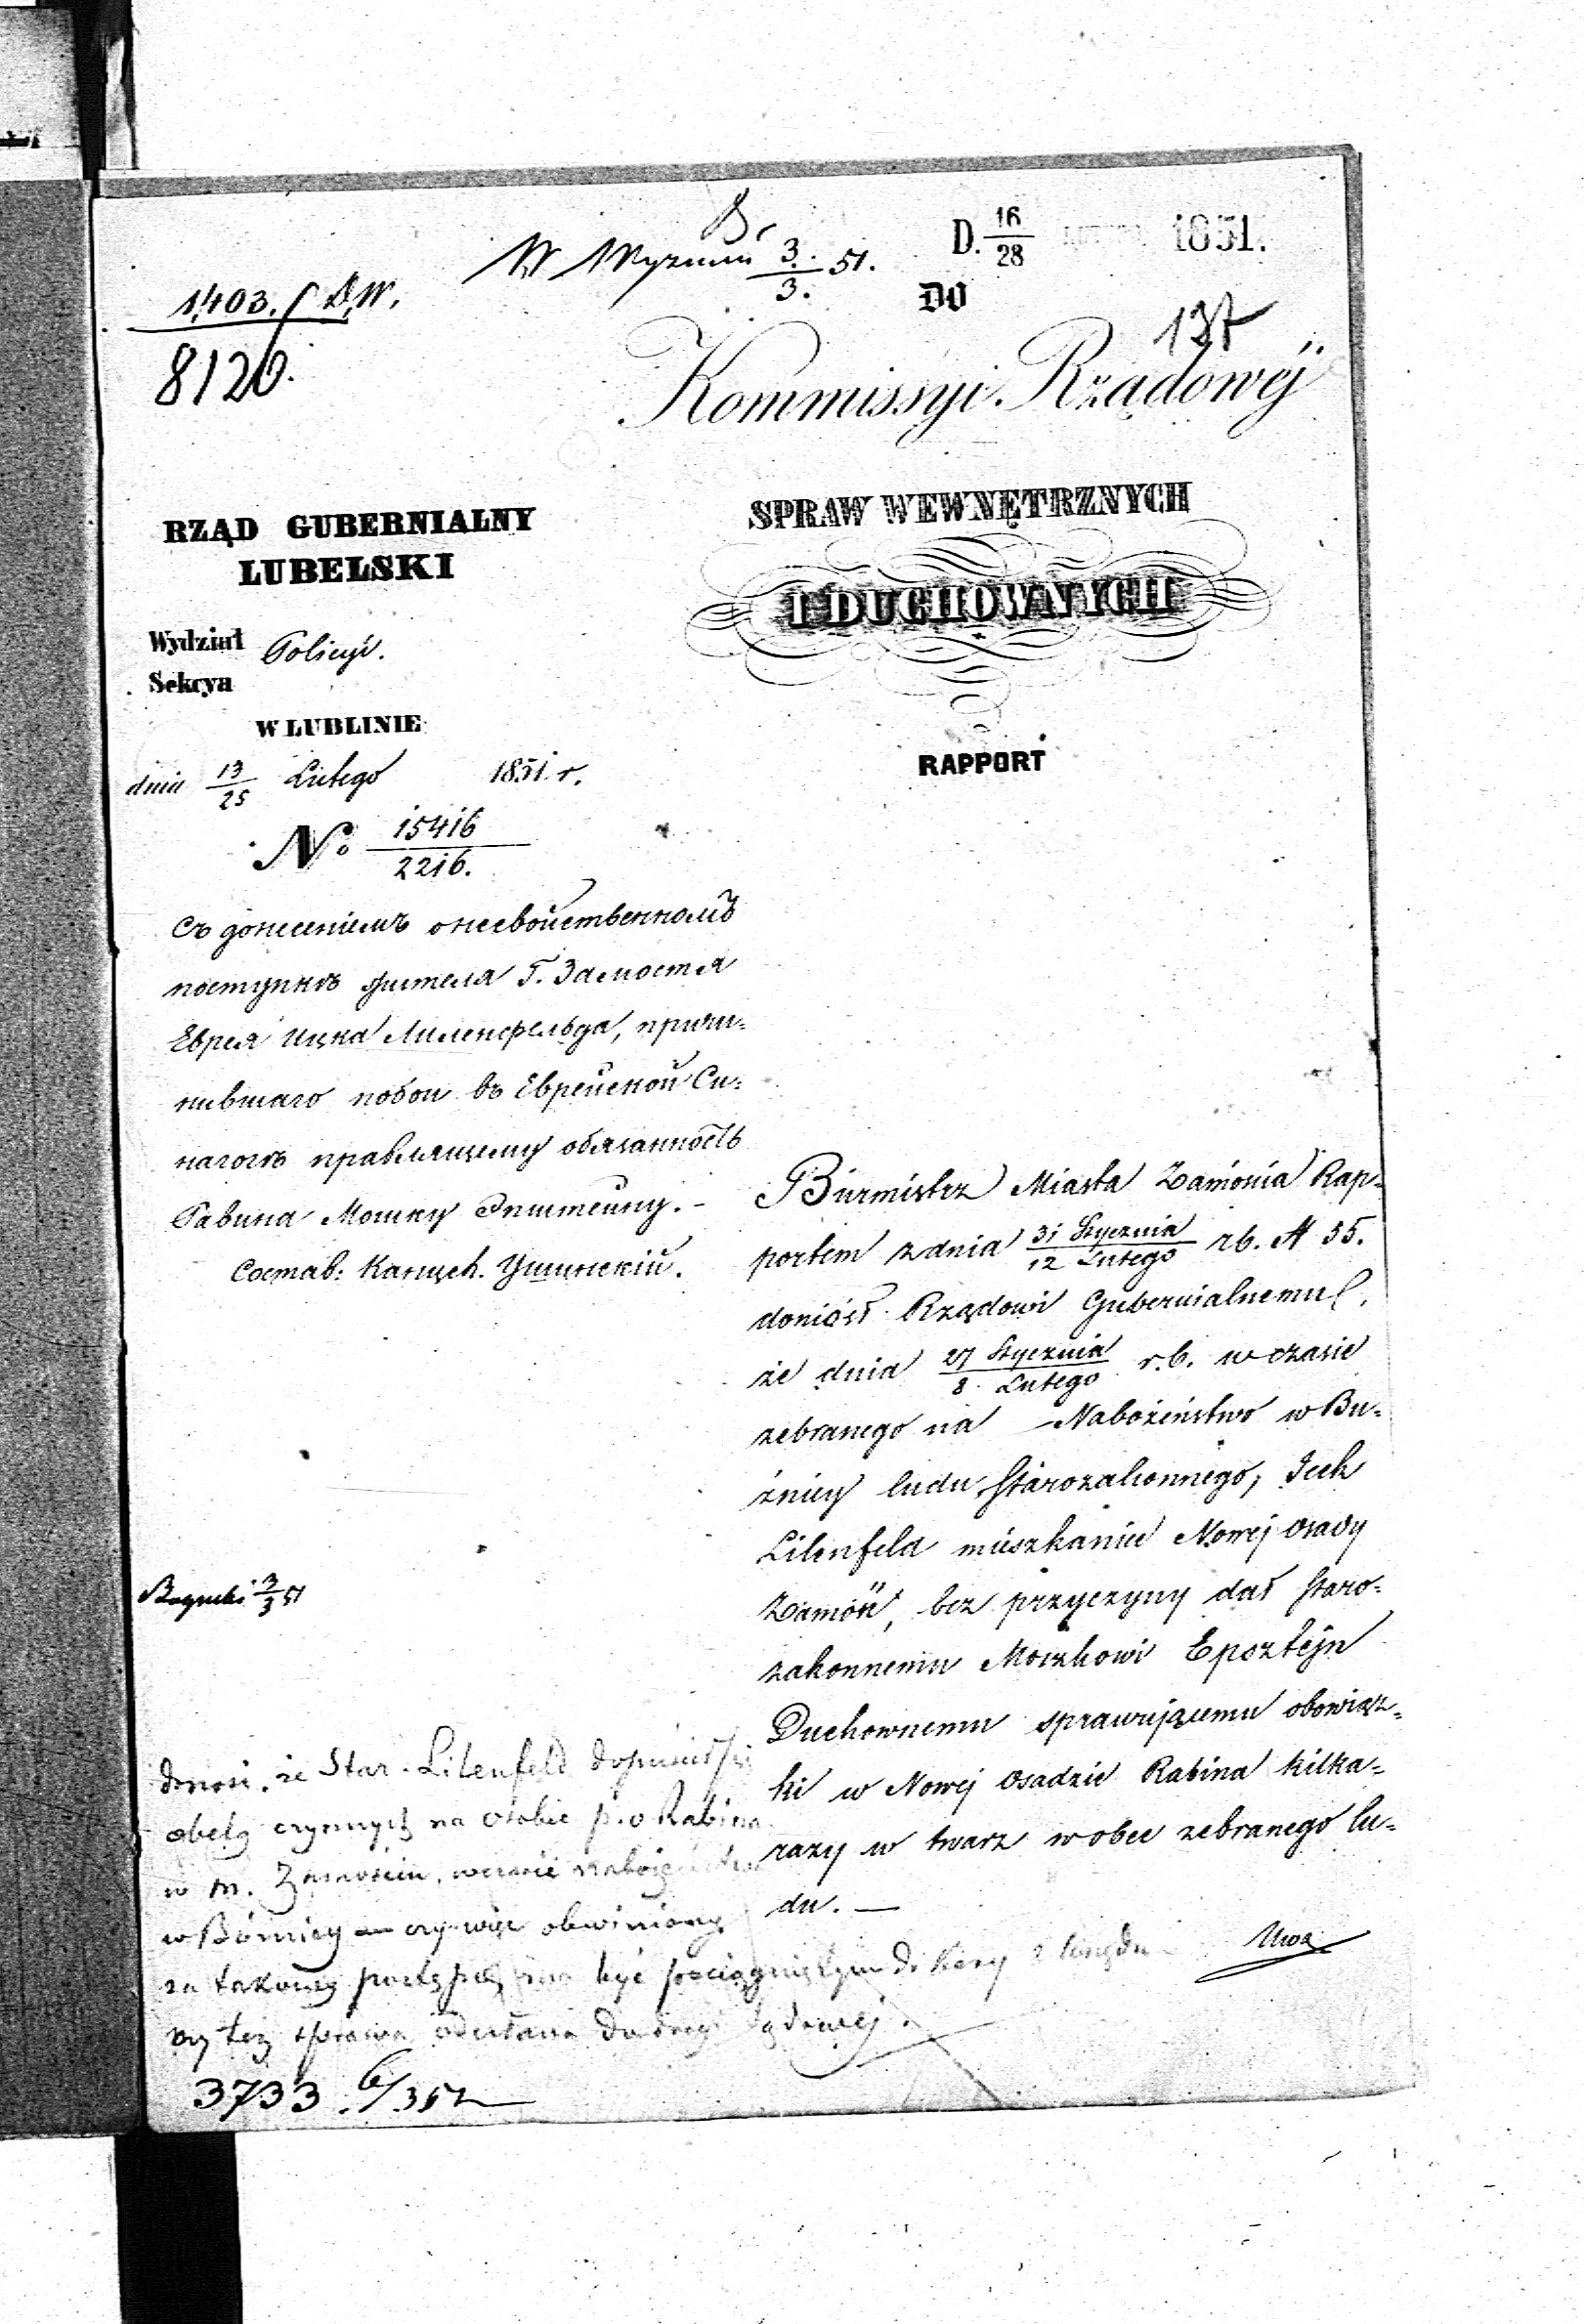 W Wyznań 3/3. 51.
D. 16/28 1851.
1,403. / D.W.
8126.
DO
137
Kommissyi Rządowéj
SPRAW WEWNĘTRZNYCH
I DUCHOWNYCH
RAPPORT
RZĄD GUBERNIALNY
LUBELSKI
Wydział Policyi.
Sekcya
W LUBLINIE
dnia 13/25 Lutego 1851. r.
No. 15416/2216.
Съ донесеніемъ о несвойственномъ
поступкѣ жителя Г. Замостья
Еврея Ицка Лиленфельда, причи=
нившаго побои въ Еврейской Си=
нагогѣ правляющему обязанность
Равина Мошку Эпштейну. -
Состав: Канцел. Ушинскій.
Burmistrz Miasta Zamościa Rap=
portem z dnia 31 Stycznia/12 Lutego rb. N 35.
doniósł Rządowi Gubernialnemu,
że dnia 27 Stycznia/8 Lutego r.b. w czasie
zebranego na Nabożeństwo w Bu=
żnicy ludu Starozakonnego, Icek
Lilenfeld mieszkaniec Nowej Osady
Zamość, bez przyczyny dał Staro=
zakonnemu Moszkowi Epsztejn
Duchownemu sprawującemu obowiąz=
ki w Nowej Osadzie Rabina kilka=
razy w twarz wobec zebranego lu=
du. —
3/3 51
donosi, że Star. Lilenfeld dopuścił się
obelg czynnych na osobie p.o Rabina
w m. Zamościu, w czasie nabożeństwa
w Bóżnicy czy więc obwiniony
za takowy postępek ma być pociągniętym do kary z urzędu
czy też sprawa odesłana do drogi sądowej.
3733